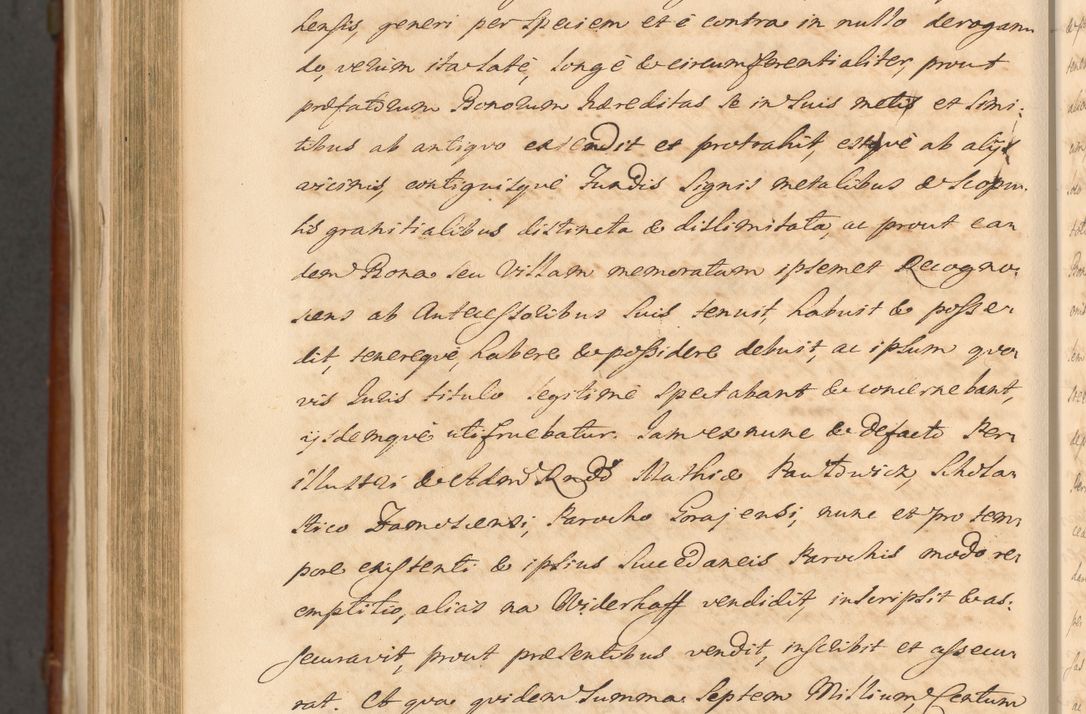 hensis, generi per Speciem et è contra in nullo derogan
do, verum ita latè, longè & circumferentialiter, prout
præfatorum Bonorum Hæreditas se in suis metis et limi:
tibus ab antiquo extendit et protrahit, estque ab alijs
avicinis, contiguisque Fundis Signis metalibus & Scopu:
lis granitialibus distincta & dislimitata, ac prout ean
dem Bona seu Villam memoratam ipsemet Recogno:
scens ab Antecessoribus suis tenuit, habuit & posse:
dit, tenereque, habere & possidere debuit, ac ipsum quo:
vis Juris titulo legitimè spectabant & concernebant,
ijsdemque utifruebatur. Jam ex nunc & defacto Per:
illustri & Adm Rndo Mathiæ Pawłowicz, Schola:
stico Zamoscensi, Parocho Gorajensi, nunc et pro tem:
pore existenti & ipsius Succedaneis Parochis modo re:
emptitio, alias na Widerkaff vendidit, inscripsit & as:
securavit, prout præsentibus vendit, inscribit et assecu:
rat. Et qua quidem Summa Septem Millium, Centum